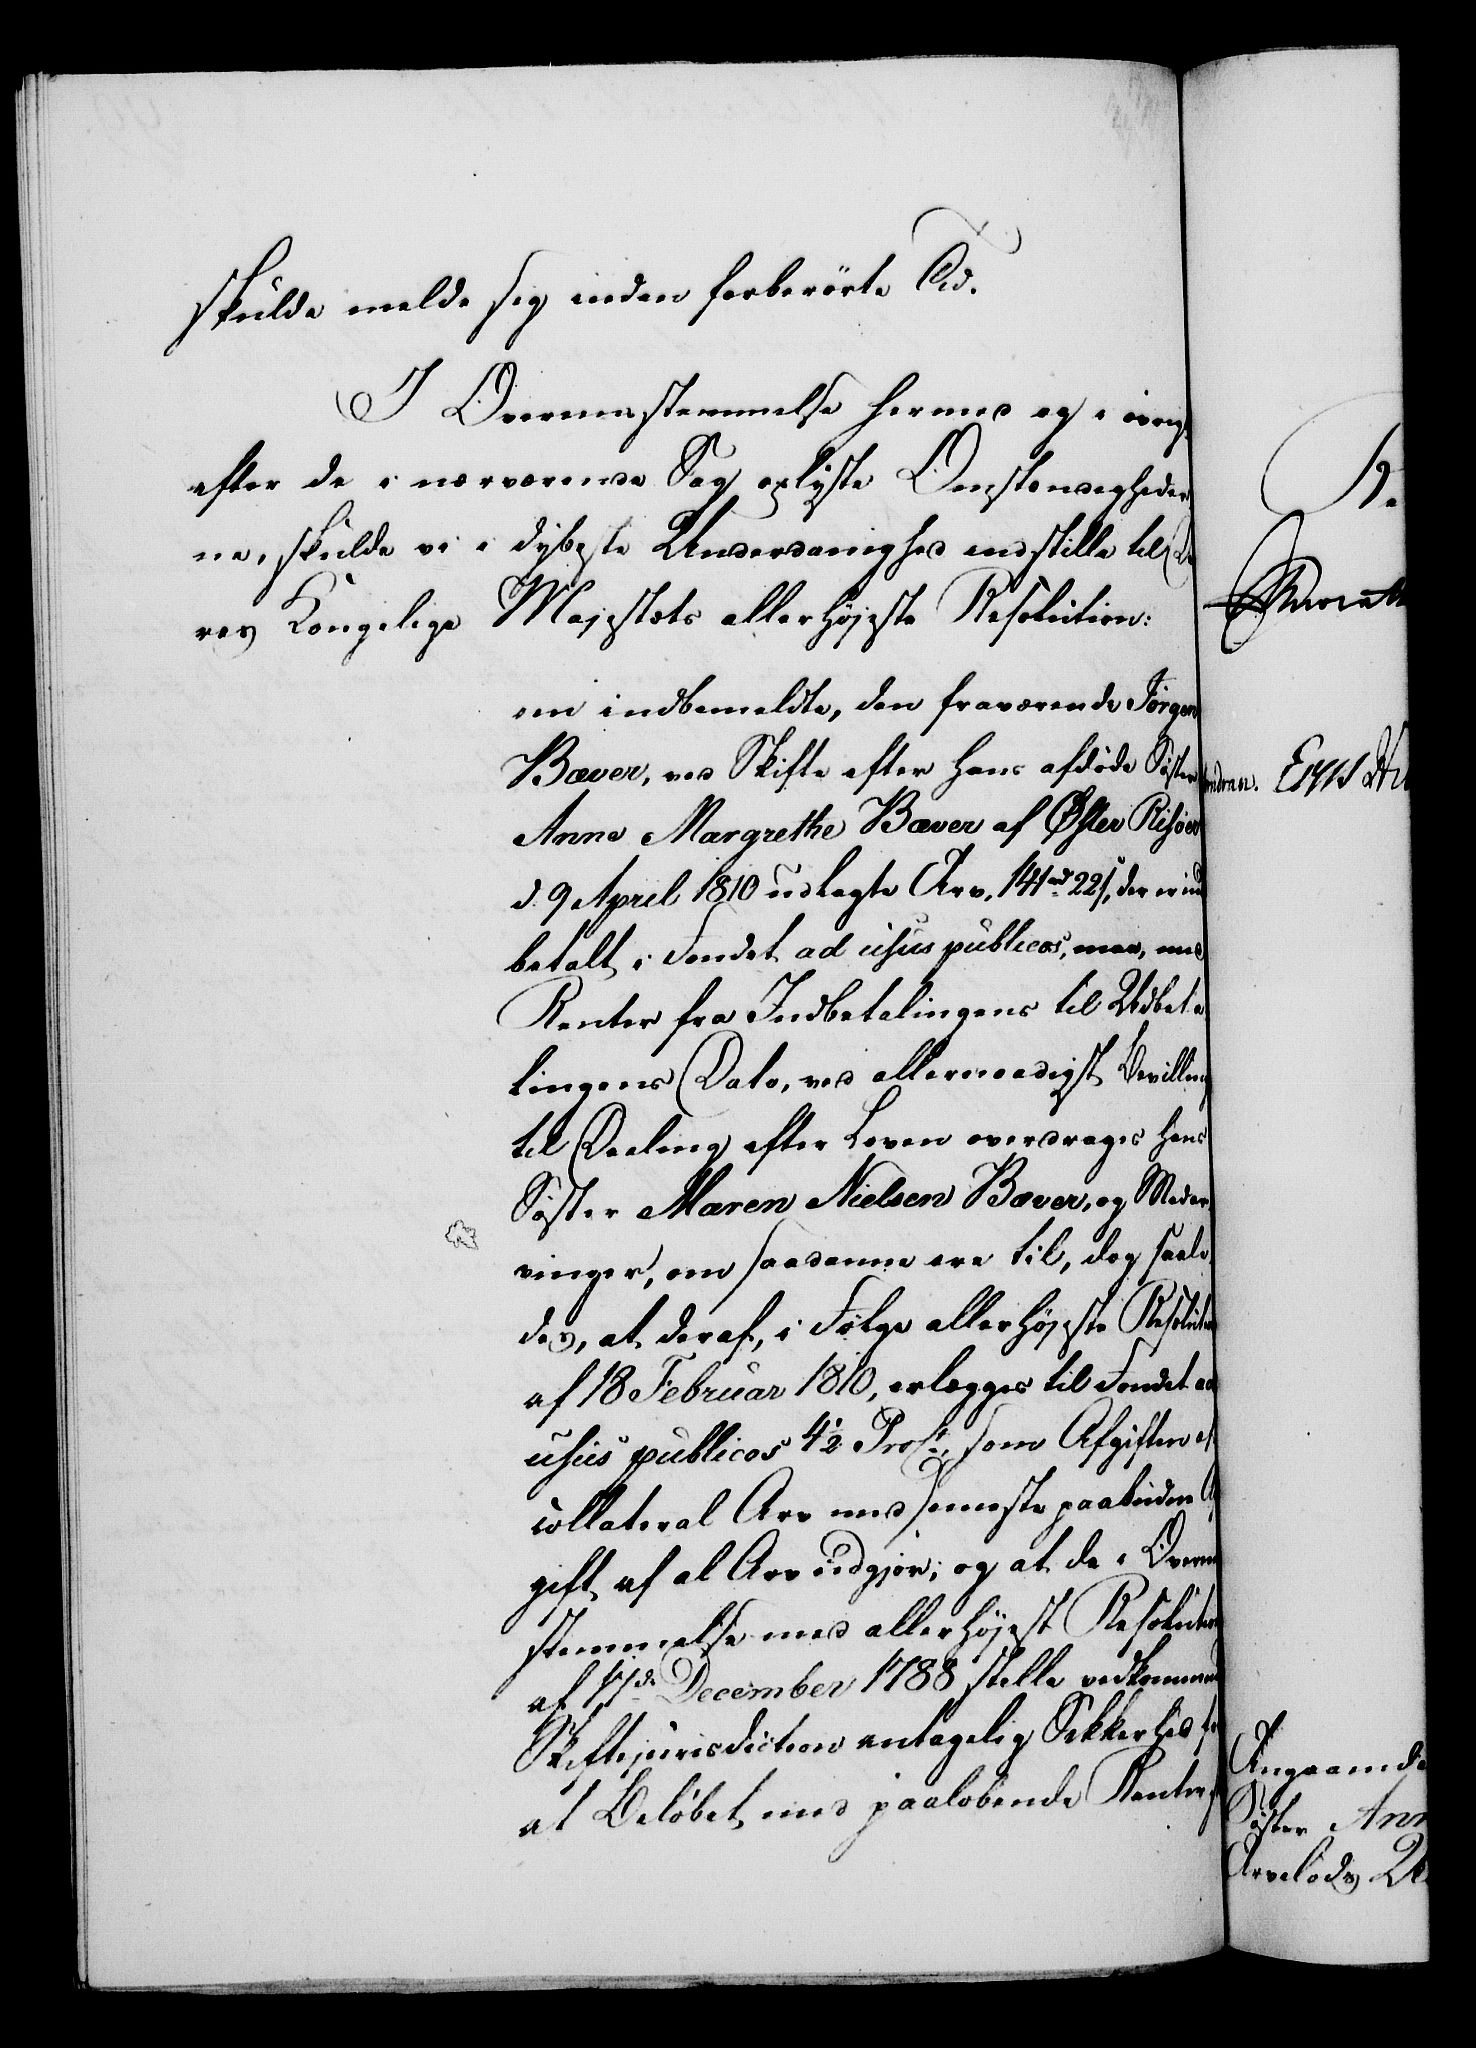 skulde melde sig inden forberørte Tid.
I Overensstemmelse hermed og i øvrigt
efter de i nærværende Sag oplyste Omstændigheder
ne, skulde vi i dybeste Underdanighed indstille til De
res Kongelige Majestæts allerhøjeste Resolution:
om indbemeldte, den fraværende Jørgen
Bæver, ved Skifte efter hans afdøde Søster
Anne Margrethe Bæver af Øster Risøer
d. 9 April 1810 udlagte Arv, 141 rd 22 s, der er ind
betalt i Fondet ad usus publicos, maa, med
Renter fra Indbetalingens til Udbeta
lingens Dato, ved allernaadigst Bevilling
til Deeling efter Loven overdrages hans
Søster Maren Nielsen Bæver, og Medar
vinger, om saadanne ere til, dog saale
des, at deraf, i Følge allerhøjeste Resolution
af 18 Februar 1810, erlægges til Fondet ad
usus publicos 4½ Proct, som Afgiften af
collateral Arv med seneste paabudne Af
gift af al Arv udgjør; og at de i Overens
stemmelse med allerhøjest Resolution
af 17de December 1788 stille vedkommende
Skiftejurisdiction antagelig Sikkerhed for
at Beløbet med paaløbende Renter
Angaaende
Søster Ann
Arvelods